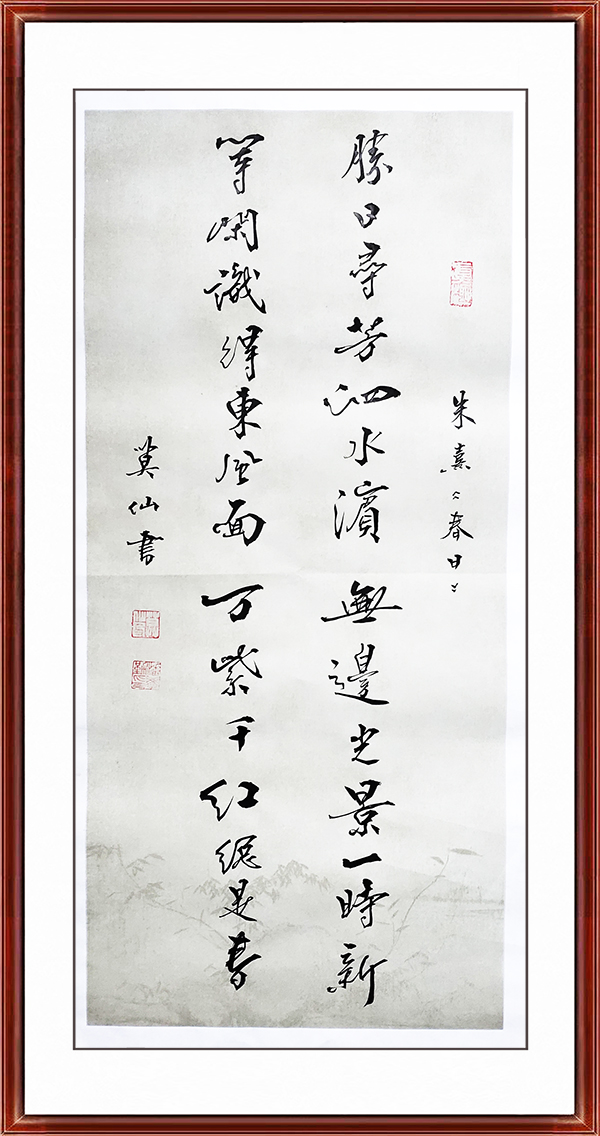 朱熹《春日》
勝日尋芳泗水濱 無邊光景一時新
等閑識得東風面 万紫千红總是春
莫仙書